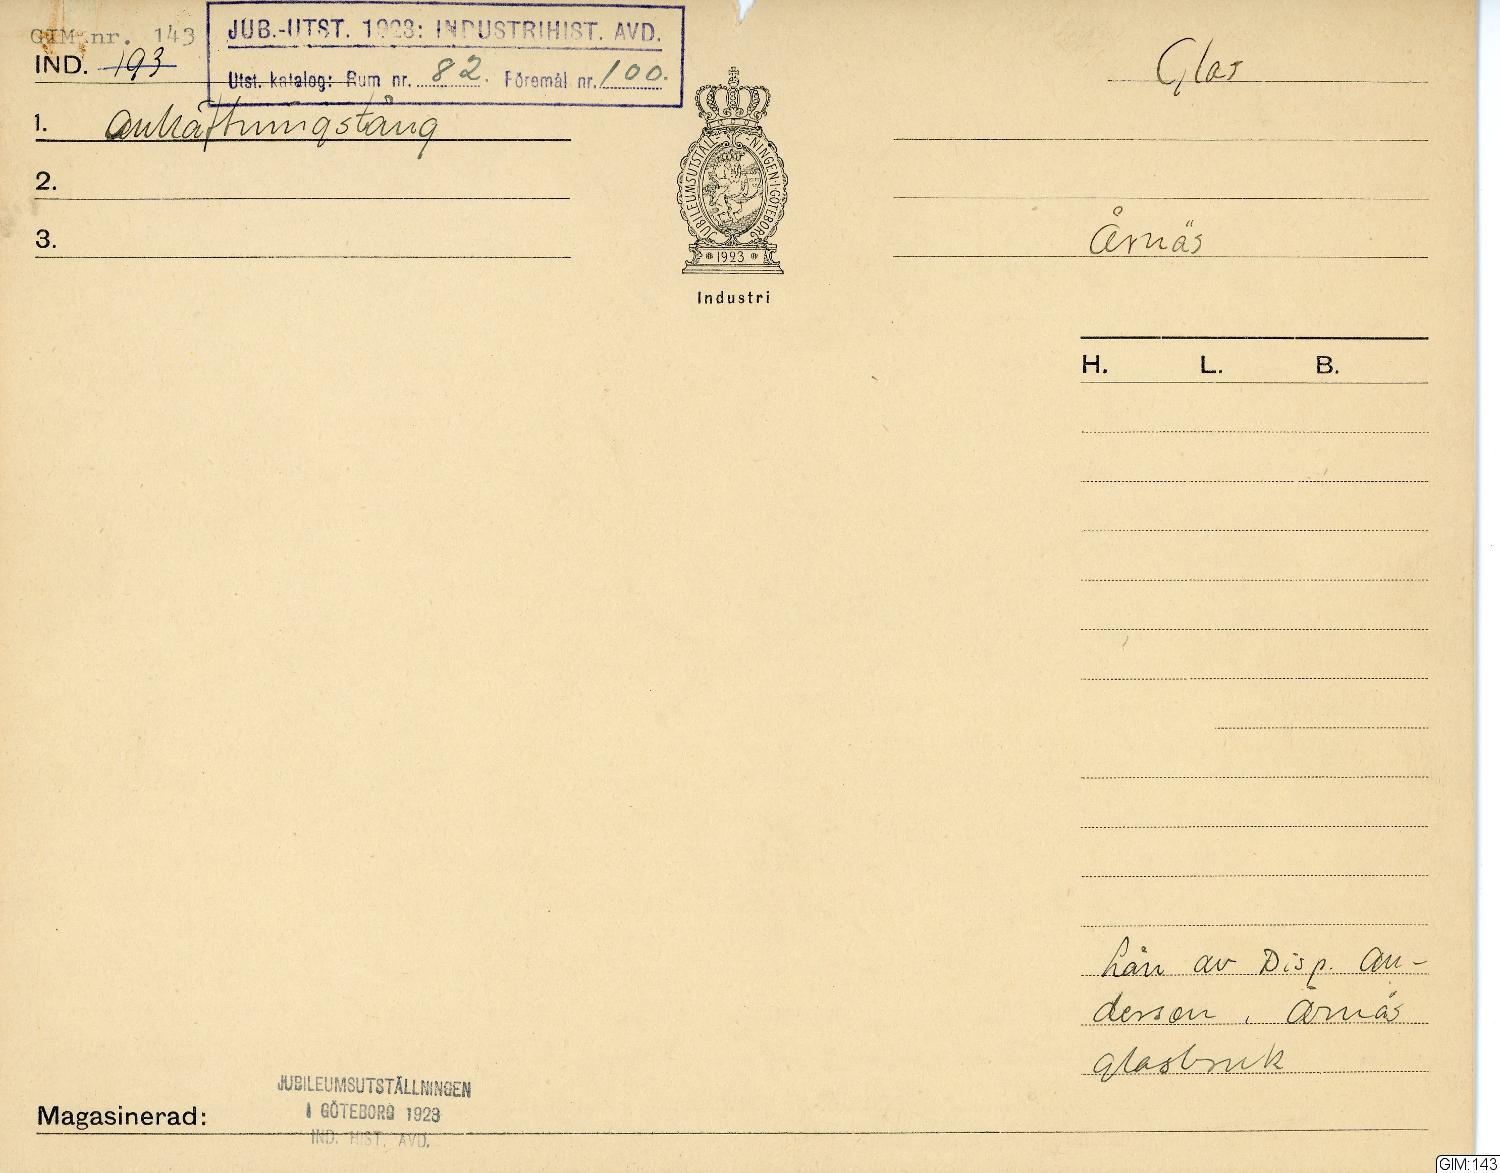 GIM.nr. 143
IND. 193
JUB.-UTST. 1923: INDUSTRIHIST. AVD.
Utst. katalog: Rum nr. 82. Föremål nr. 100.
Glas
1. Anhäftningstång
2.
3.
JUBILEUMSUTSTÄLL-NINGEN I GÖTEBORG
1923
Industri
Årnäs
H. L. B.
Lån av Disp. An-
derson, Årnäs
glasbruk
JUBILEUMSUTSTÄLLNINGEN
I GÖTEBORG 1923
IND. HIST. AVD.
Magasinerad:
GIM:143